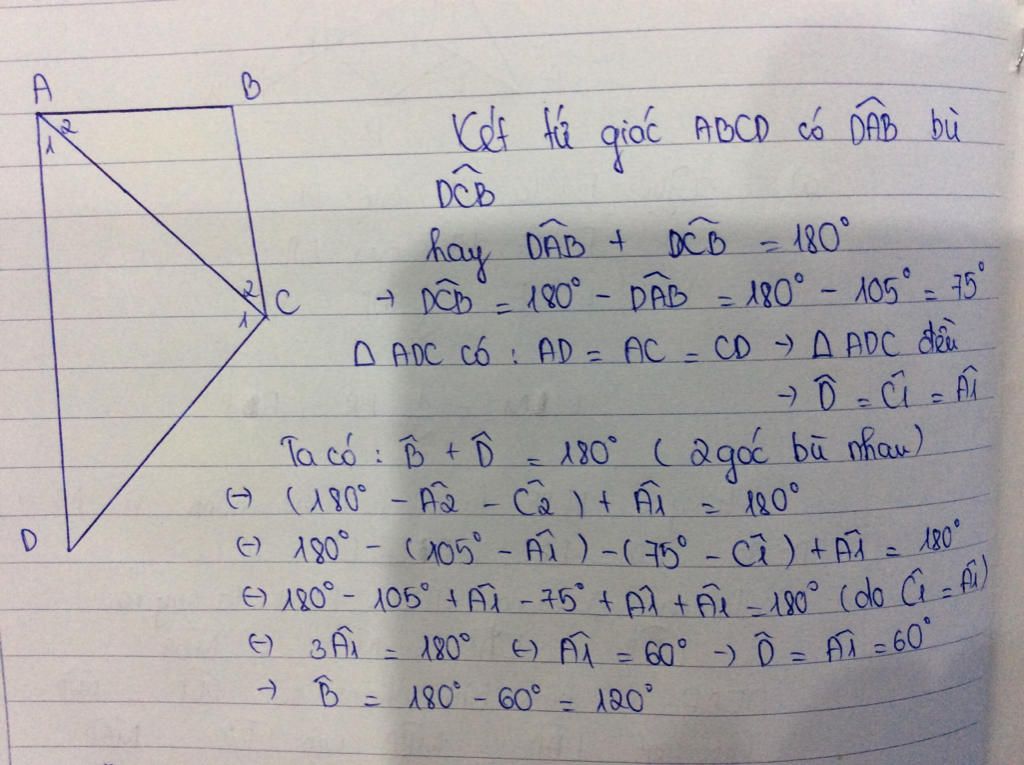 A
B
1 2
2
C
1
D
Xét tứ giác ABCD có D̂AB bù
D̂CB
hay D̂AB + D̂CB = 180°
→ D̂CB = 180° - D̂AB = 180° - 105° = 75°
Δ ADC có : AD = AC = CD → Δ ADC đều
→ D̂ = Ĉ1 = Â1
Ta có : B̂ + D̂ = 180° ( 2 góc bù nhau )
(-) (180° - Â2 - Ĉ2 ) + Â1 = 180°
(-) 180° - (105° - Â1 ) - (75° - Ĉ1 ) + Â1 = 180°
(-) 180° - 105° + Â1 - 75° + Â1 + Â1 = 180° (do Ĉ1 = Â1)
(-) 3Â1 = 180° (-) Â1 = 60° → D̂ = Â1 = 60°
→ B̂ = 180° - 60° = 120°